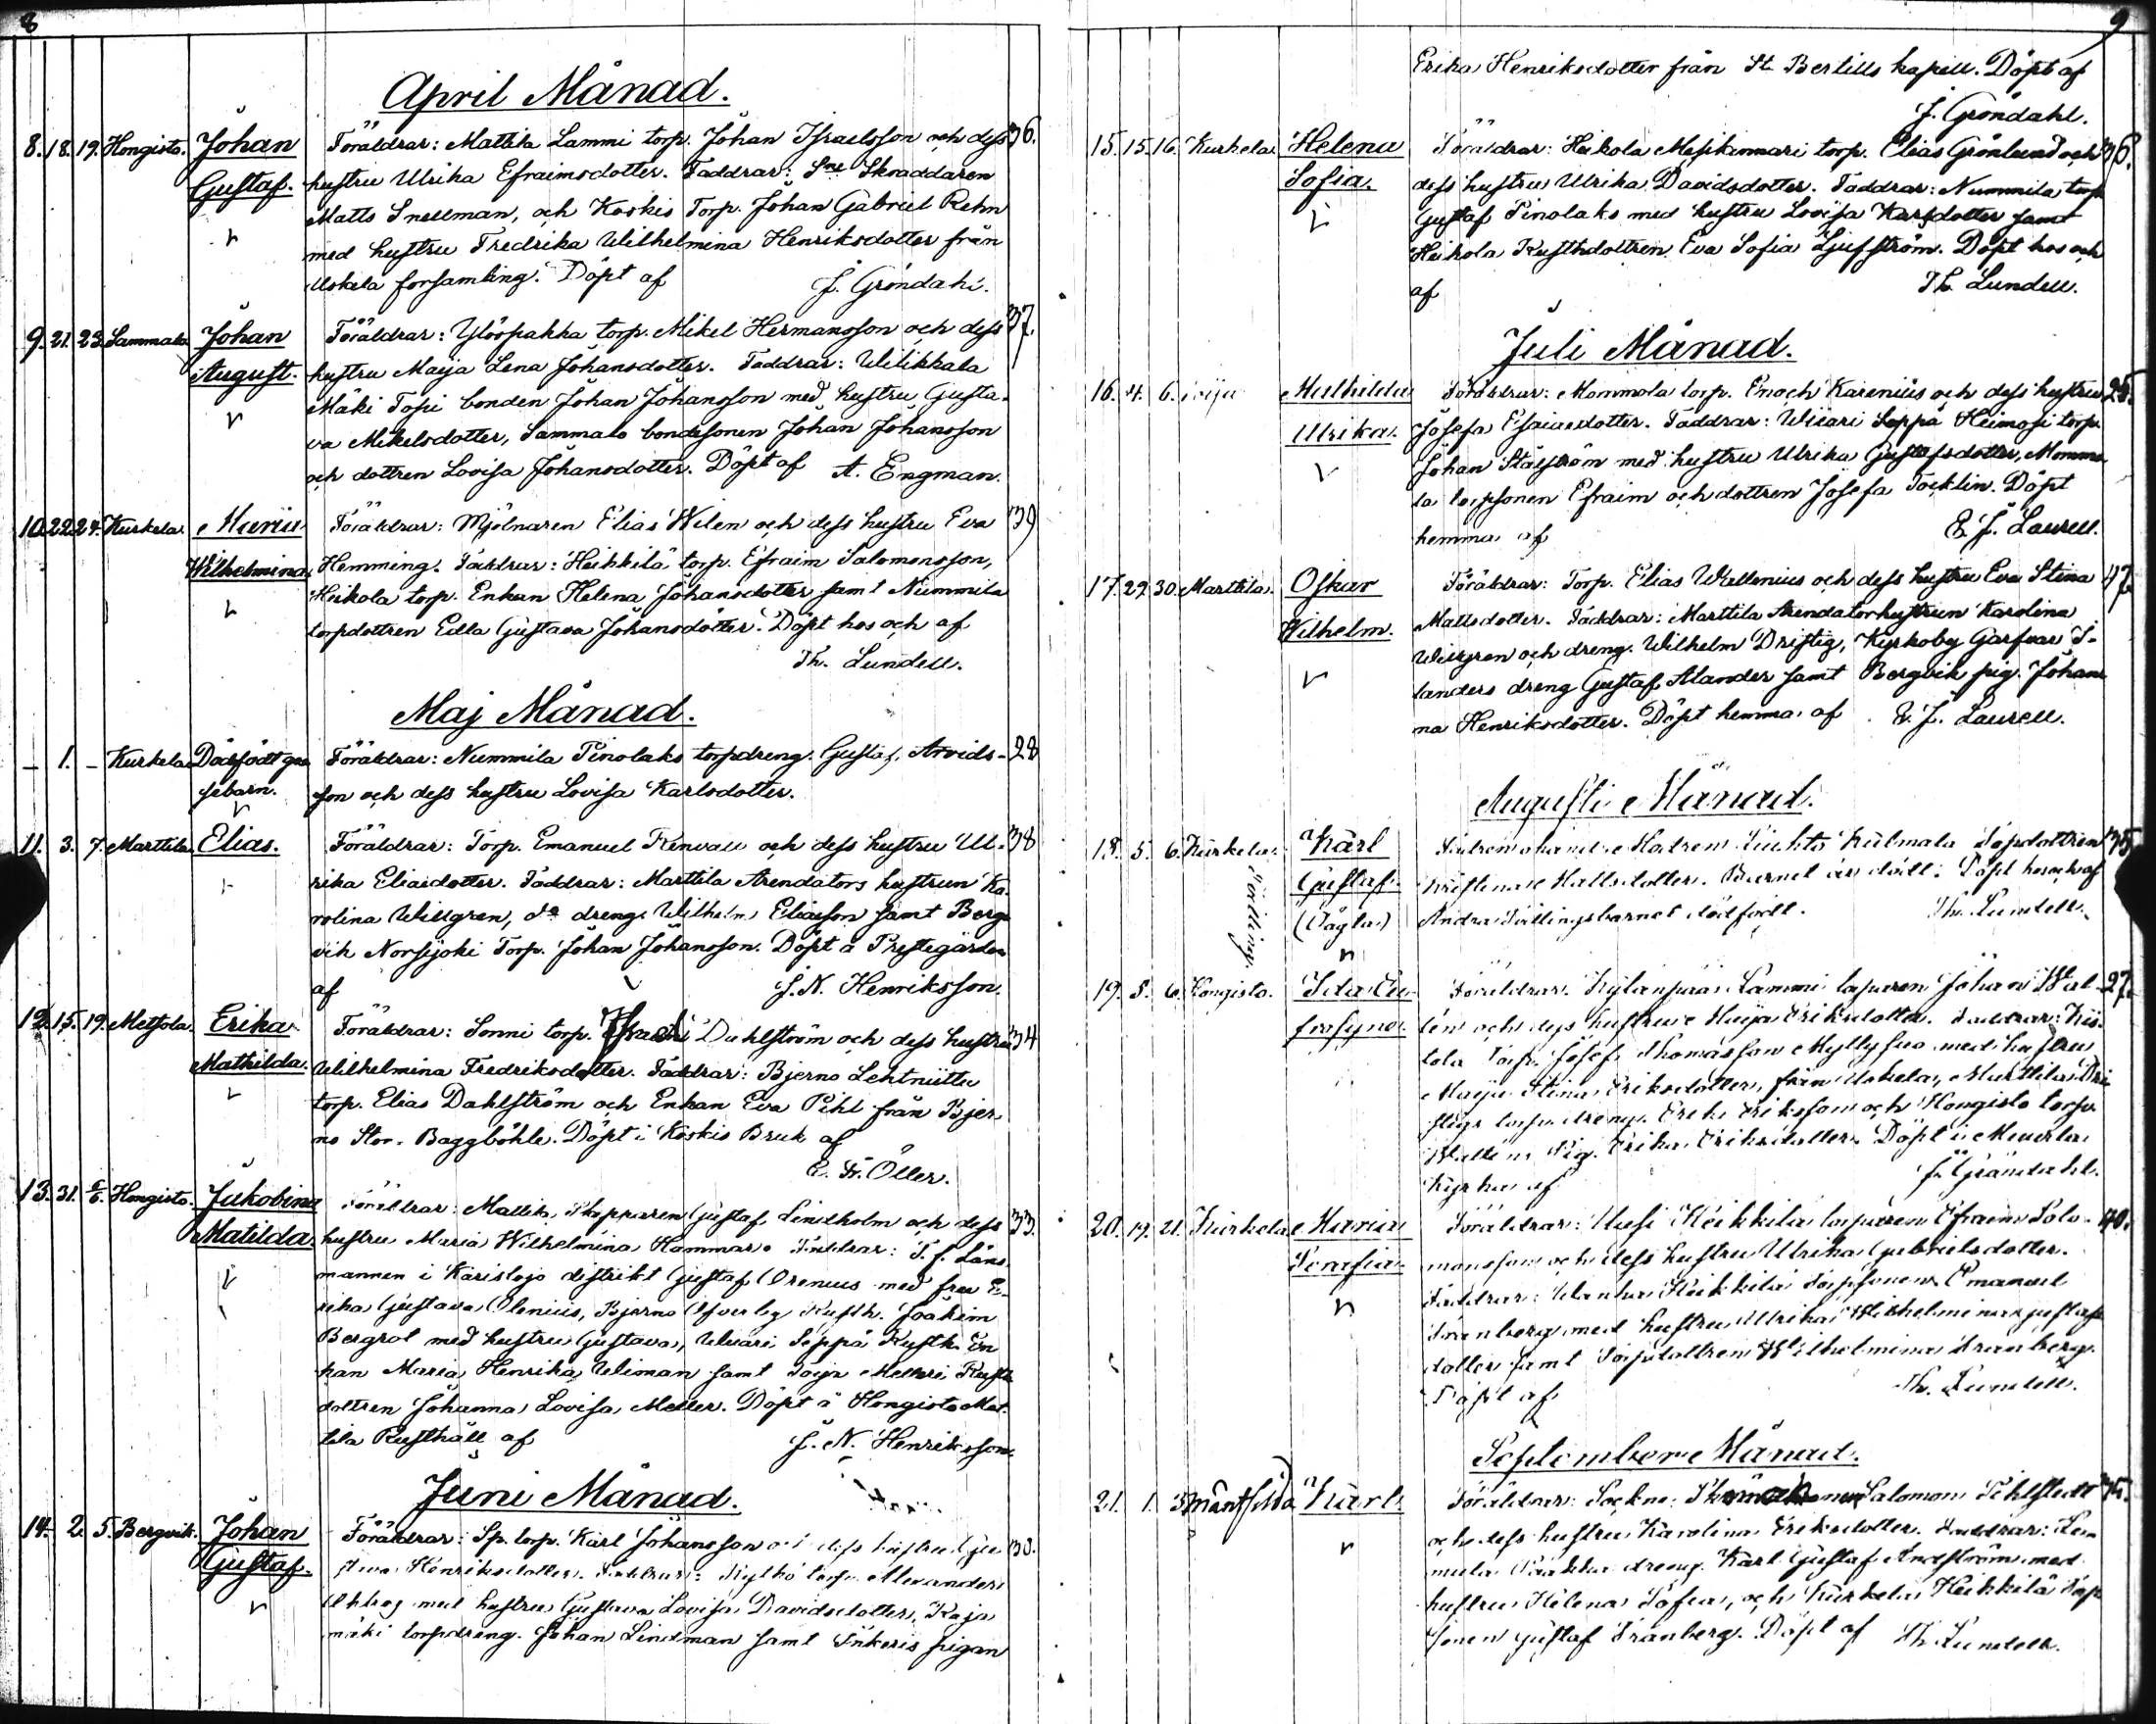 8
April Månad.
8. 18. 19. Hongisto. Johan Föräldrar: Mattila Lammi torp. Johan Israelsson och dess 36.
Gustaf. hustru Ulrika Efraimsdotter. Faddrar: Sne Skraddaren
Matts Snellman, och Koskis Torp. Johan Gabriel Rehn
med hustru Fredrika Wilhelmina Henriksdotter från
Uskela församling. Döpt af J. Gröndahl.
9. 21. 23. Sammalo Johan Föräldrar: Ylöspakka torp. Mikel Hermansson och dess 37.
August. hustru Maija Lena Johansdotter. Faddrar: Wilikkala
Mäki Topi bonden Johan Johansson med hustru Gusta-
va Mikelsdotter, Sammalo bondesonen Johan Johansson
och dottren Lovisa Johansdotter. Döpt af A. Engman.
10. 22. 24. Kurkela. Maria Föräldrar: Mjölnaren Elias Wilen och dess hustru Eva 39
Wilhelmina Hemming. Faddrar: Heikkilä torp. Efraim Salomonsson,
Heikola torp. Enkan Helena Johansdotter samt Nummila
torpdottren Eilla Gustava Johansdotter. Döpt hos och af
Th. Lundell.
Maj Månad.
– 1. – Kurkela Dödfödt gos Föräldrar: Nummila Pinolaks torpdreng. Gustaf Arvids- 28
sebarn. son och dess hustru Lovisa Karlsdotter.
11. 3. 7. Marttila Elias. Föräldrar: Torp. Emanuel Renvall och dess hustru Ul- 38
rika Eliasdotter. Faddrar: Marttila Arendators hustrun Ka-
rolina Willgren, do dreng. Wilhelm Eliasson samt Berg-
vik Norsijoki Torp. Johan Johansson. Döpt å Prestegården
af J. N. Henriksson.
12. 15. 19. Metsola. Erika Föräldrar: Sonni torp. Isak Dahlström och dess hustru 34
Mathilda. Wilhelmina Fredriksdotter. Faddrar: Bjerno Lehtniittu
torp. Elias Dahlström och Enkan Eva Pihl från Bjer-
no Stor. Baggböhle. Döpt i Koskis Bruk af
E. Fr. Öller.
13. 31. 6/6. Hongisto. Jakobina Föräldrar: Mattila Skepparen Gustaf Lindholm och dess 33.
Matilda. hustru Maria Wilhelmina Hammar. Faddrar: T. f. Läns
mannen i Karislojo distrikt Gustaf Orenius med fru E-
rika Gustava Olenius, Bjerno Ofverby Rusth. Joakim
Bergrot med hustru Gustava, Wiiari Seppä Rusth. En
kan Maria Henrika Wiman samt Toija Melkri Rusth
dottren Johanna Lovisa Meller. Döpt å Hongisto Mat-
tila Rusthåll af J. N. Henriksson
Juni Månad.
14. 2. 5. Bergvik. Johan Föräldrar: Sp. torp. Karl Johansson och dess hustru Gu 30.
Gustaf. stava Henriksdotter. Faddrar: Kylhö torp. Alexander
med hustru Gustava Lovisa Davidsdotter, Koja
mäki torpdreng. Johan Lindman samt Inkeris pigan
9
Erika Henriksdotter från St. Bertills kapell. Döpt af
J. Gröndahl.
15. 15. 16. Kurkela. Helena Föräldrar: Heikola Mesikammari torp. Elias Grönlund och 36.
Sofia. dess hustru Ulrika Davidsdotter. Faddrar: Nummila torp
Gustaf Pinolaks med hustru Lovisa Karlsdotter samt
Heikola Rusthdottren Eva Sofia Ljufström. Döpt hos och
af Th. Lundell.
Juli Månad.
16. 4. 6. Toija Mathilda Föräldrar: Mommola torp. Enoch Karenius och dess hustru 25.
Ulrika. Josefa Esaiasdotter. Faddrar: Wiiari Seppä Heimosi torp.
Johan Stålström med hustru Ulrika Gustafsdotter, Mommo
la torpsonen Efraim och dottren Josefa Tocklin. Döpt
hemma af E. J. Laurell.
17. 29. 30. Marttila. Oskar Föräldrar: Torp. Elias Wallenius och dess hustru Eva Stina 47
Wilhelm. Mattsdotter. Faddrar: Marttila Arendatorhustrun Karolina
Willgren och dreng. Wilhelm Driftig, Kyrkoby Garfvar S-
landers dreng Gustaf Alander samt Bergvik pig. Johan
na Henriksdotter. Döpt hemma af E. J. Laurell.
Augusti Månad.
18. 5. 6. Kurkela. Karl Fadren okänd. Modren Kulmala Torpdottren 35
Tvilling. Gustaf. Kristina Mattsdotter. Barnet är dödt. Döpt hos och af
(Oägta) Andra Tvillingsbarnet dödfödt. Th. Lundell.
19. 5. 6. Hongisto. Ida Eu- Föräldrar: Kylänpää Lammi torparen Johan Wal- 27.
frosyna. len och dess hustru Maija Eriksdotter. Faddrar: Kis-
kola torp. Josef Thomasson Myllysuo med hustru
Maija Stina Eriksdotter, från Uskela, Marttila Dri
ftigs torpdreng. Erik Eriksson och Hongisto torp.
Walléns Pig. Erika Eriksdotter. Döpt i Muurla
Kyrka af J. Gröndahl.
20. 19. 21. Kurkela Maria Föräldrar: Uusi Heikkilä torparen Efraim Salo- 40.
Serafia. monsson och dess hustru Ulrika Gabrielsdotter.
Faddrar: Wanha Heikkilä Torpsonen Emanuel
Franberg med hustru Ulrika Wilhelmina Gustafs
dotter samt Torpdottren Wilhelmina Franberg.
Döpt af Th. Lundell.
September Månad.
21. 1. 3. Karl Föräldrar: Sockne Salomon Pihlstedt
och dess hustru Karolina Eriksdotter. Faddrar:
dreng. Karl Gustaf Andström med
hustru Helena Sofia, och Kurkela Heikkilä Torp
sonen Gustaf Franberg. Döpt af Th. Lundell.